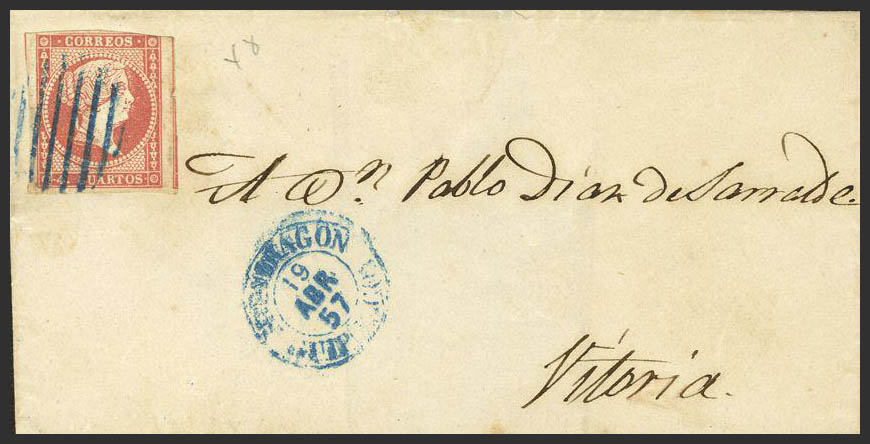 CORREOS
4 CUARTOS
A Dn. Pablo Diaz de Sarralde.
19
ABR
57
Vitoria.